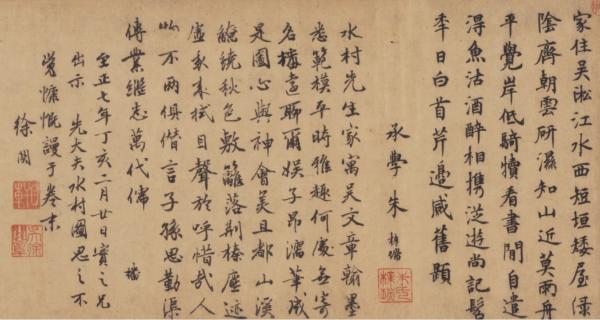 家住吴淞江水西短垣矮屋緑
陰齊朝雲研濕知山近莫雨舟
平覺岸低騎犢看書閒自遣
得魚沽酒醉相携從遊尚記髫
年日白首芹邊感舊題
承學朱
水村先生家寓吴文章翰墨
悉範模平時雅趣何處無寄
名遠聊爾娱子昂濡筆成
是圖心與神會美且都山溪
繚繞秋色敷籬落荆榛塵迹
虚我来拭目聲於呼惜哉人
物不兩俱偕言子孫思勤渠
傳業継志萬代儒
至正七年丁亥二月廿日實之兄
出示 先大夫水村圖思之不
覺慷慨謾于卷末
徐関